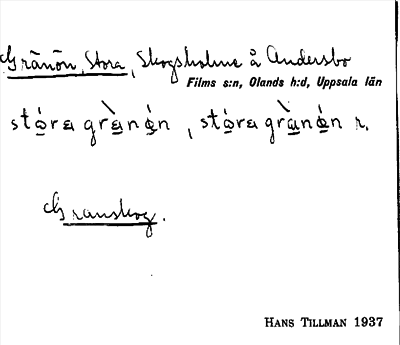 Gränön, Stora, Skogsholme å Andersbo
Films s:n, Olands h:d, Uppsala län
stó̱ra grä̱̀nó̱n, stó̱ra grà̱nó̱n r.
Granskog.
HANS TILLMAN 1937